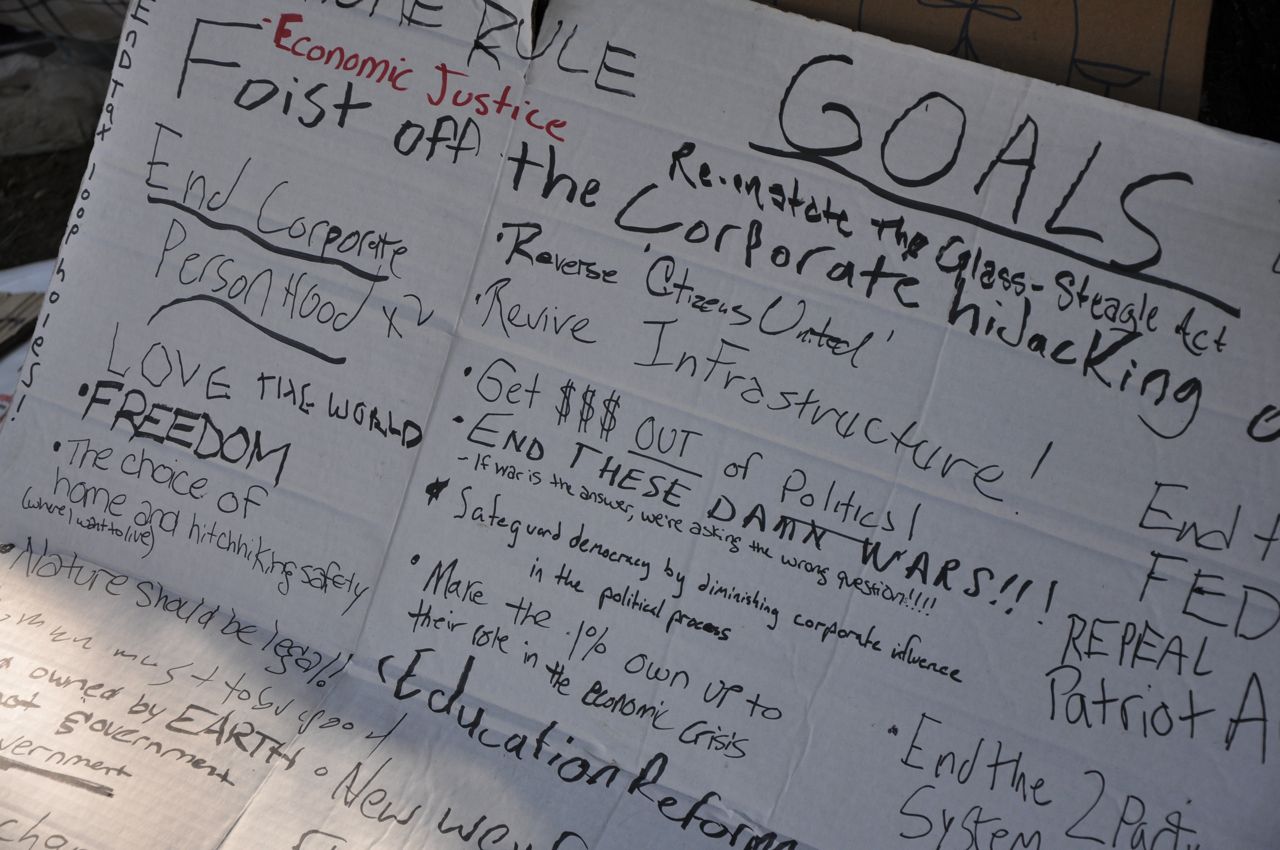 END TAX loopholes!
RULE
GOALS
Economic Justice
Foist off the Corporate hiJacking
Re-instate the Glass-Steagle Act
End Corporate
PersonHood x2
LOVE THE WORLD
• FREEDOM
• The choice of
home and hitchhiking safety
(where I want to live)
• Nature should be legal!!
owned by EARTH
not government
• Reverse 'Citizens United'
• Revive InFrastructure!
• Get $$$ OUT of Politics!
• END THESE DAMN WARS!!!
- If war is the answer, we're asking the wrong question!!!!
Safeguard democracy by diminishing corporate influence
in the political process
• Make the 1% own up to
their role in the Economic Crisis
• Education Reform
• New
End
FED
REPEAL
Patriot A
• End the 2 Party
System